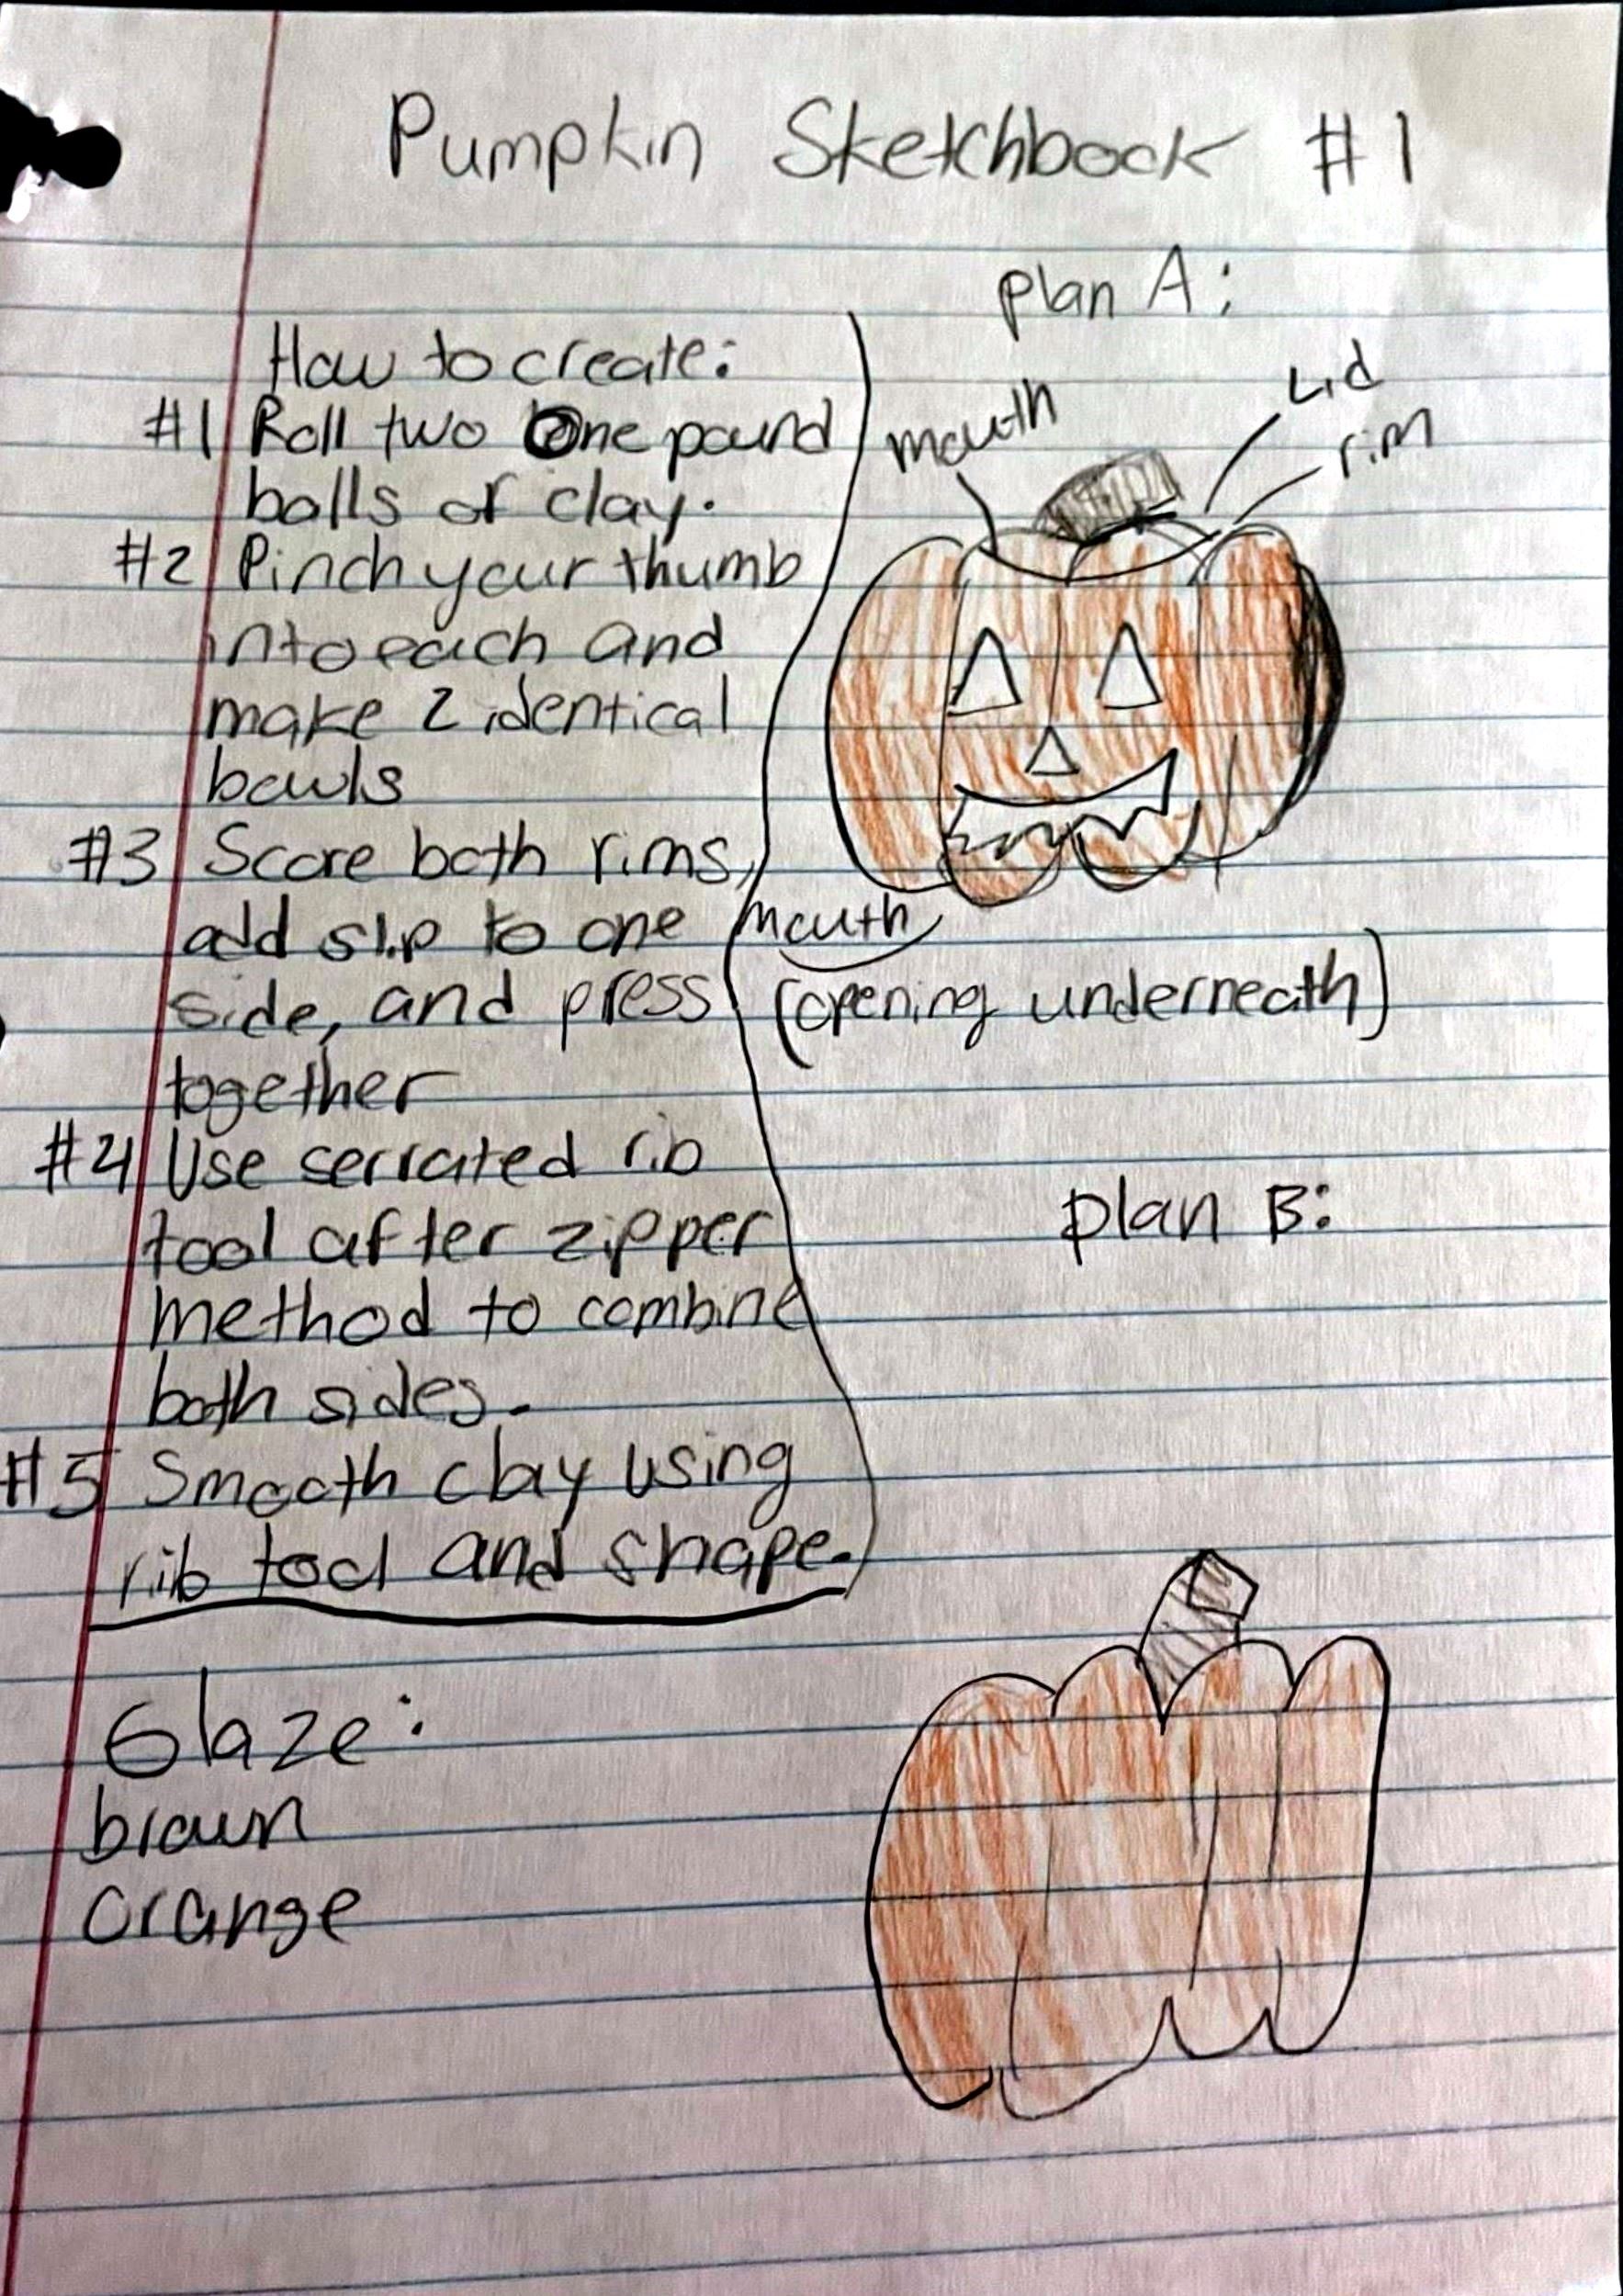 Pumpkin Sketchbook #1
How to create:
#1 Roll two One pound
balls of clay.
#2 Pinch your thumb
into each and
make 2 identical
bowls
#3 Score both rims,
add slip to one
side, and press
together
#4 Use serrated rib
tool after zipper
method to combine
both sides.
#5 Smooth clay using
rib tool and shape.
Glaze:
brown
orange
plan A:
mouth
Lid
rim
mouth
(opening underneath)
plan B: